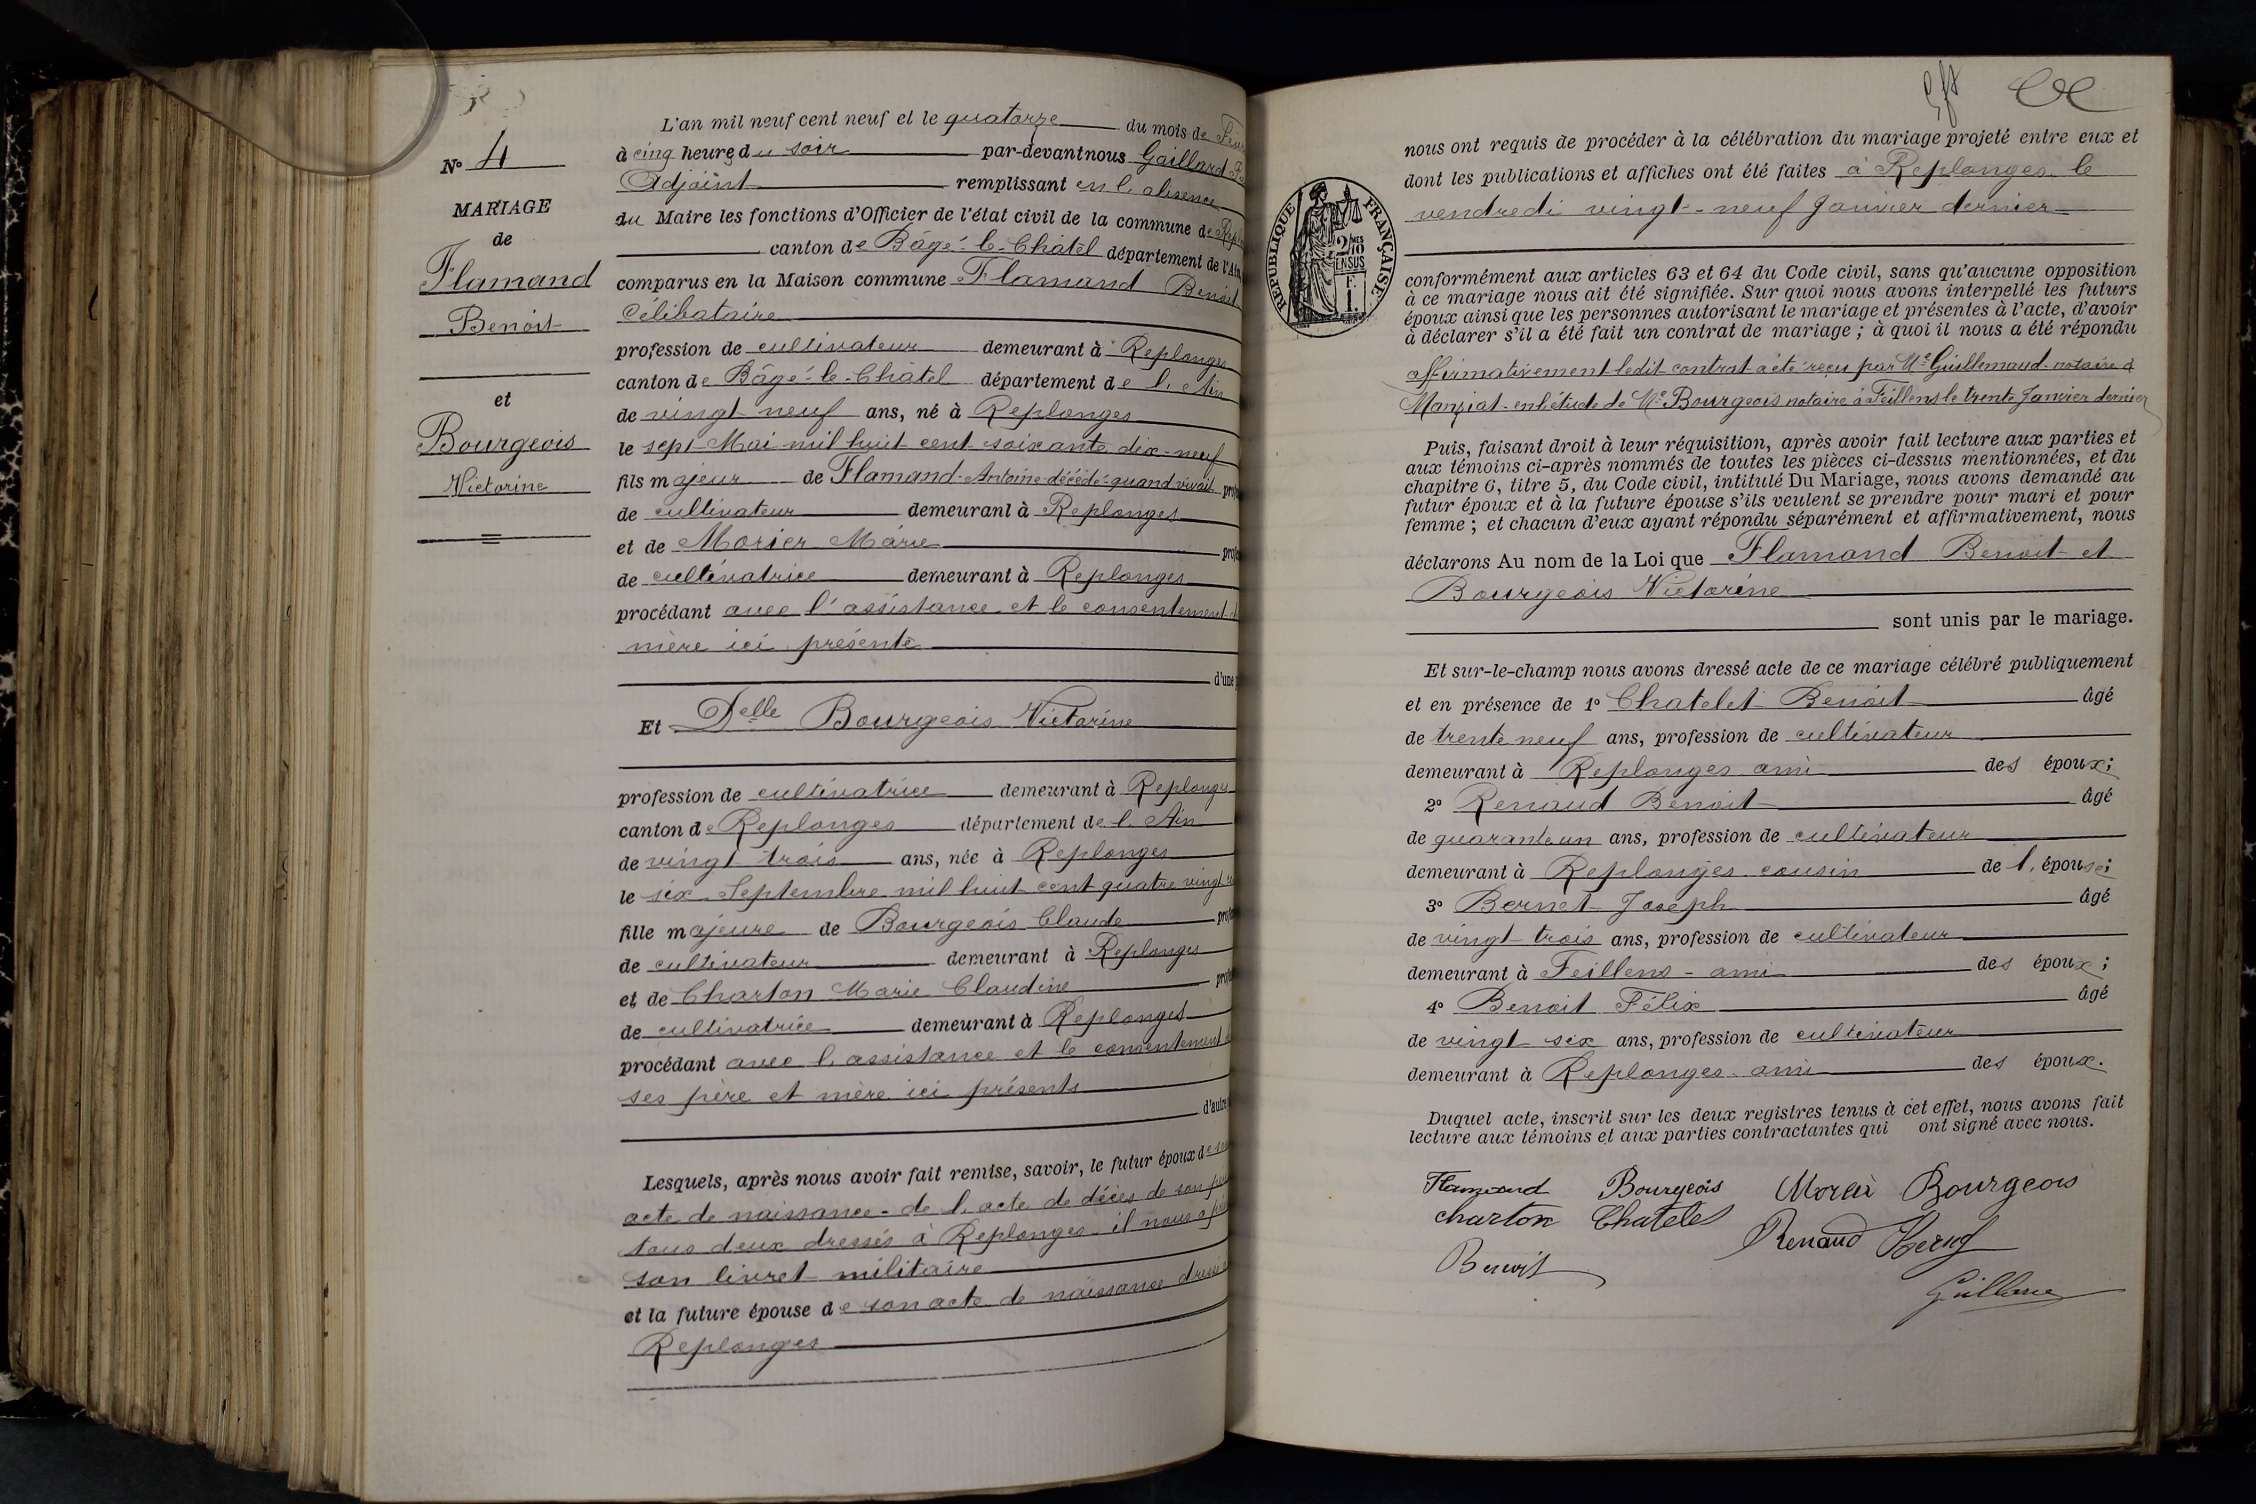 N° 4
MARIAGE
de
Flamand
Benoit
et
Bourgeois
Victorine
L'an mil neuf cent neuf et le quatorze du mois de
à cinq heures du soir par-devant nous Gaillard
Adjoint remplissant en l'absence
du Maire les fonctions d'Officier de l'état civil de la commune de
canton de Bâgé-le-Châtel département de l'Ain,
comparus en la Maison commune Flamand Benoit
Célibataire
profession de cultivateur demeurant à Replonges
canton de Bâgé-le-Châtel département de l'Ain
de vingt neuf ans, né à Replonges
le sept Mai mil huit cent soixante dix-neuf
fils majeur de Flamand Antoine décédé quand vivait
de cultivateur demeurant à Replonges
et de Morier Marie
de cultivatrice demeurant à Replonges
procédant avec l'assistance et le consentement
mère ici présente
d'une
Et Delle Bourgeois Victorine
profession de cultivatrice demeurant à Replonges
canton de Replonges département de l'Ain
de vingt trois ans, née à Replonges
le six Septembre mil huit cent quatre vingt
fille majeure de Bourgeois Claude
de cultivateur demeurant à Replonges
et de Charton Marie Claudine
de cultivatrice demeurant à Replonges
procédant avec l'assistance et le consentement
ses père et mère ici présents
d'autre
Lesquels, après nous avoir fait remise, savoir, le futur époux de
acte de naissance - de l'acte de décès de son
tous deux dressés à Replonges - il nous a
son livret militaire
et la future épouse de son acte de naissance
Replonges
nous ont requis de procéder à la célébration du mariage projeté entre eux et
dont les publications et affiches ont été faites à Replonges le
vendredi vingt-neuf Janvier dernier
RÉPUBLIQUE FRANÇAISE
2/10
EN SUS
F.
1
conformément aux articles 63 et 64 du Code civil, sans qu'aucune opposition
à ce mariage nous ait été signifiée. Sur quoi nous avons interpellé les futurs
époux ainsi que les personnes autorisant le mariage et présentes à l'acte, d'avoir
à déclarer s'il a été fait un contrat de mariage ; à quoi il nous a été répondu
affirmativement ledit contrat a été reçu par Me Guillemaud notaire à
Manziat en l'étude de Me Bourgeois notaire à Feillens le trente Janvier dernier
Puis, faisant droit à leur réquisition, après avoir fait lecture aux parties et
aux témoins ci-après nommés de toutes les pièces ci-dessus mentionnées, et du
chapitre 6, titre 5, du Code civil, intitulé Du Mariage, nous avons demandé au
futur époux et à la future épouse s'ils veulent se prendre pour mari et pour
femme ; et chacun d'eux ayant répondu séparément et affirmativement, nous
déclarons Au nom de la Loi que Flamand Benoit et
Bourgeois Victorine
sont unis par le mariage.
Et sur-le-champ nous avons dressé acte de ce mariage célébré publiquement
et en présence de 1° Chatelet Benoit âgé
de trente neuf ans, profession de cultivateur
demeurant à Replonges ami des époux ;
2° Renaud Benoit âgé
de quarante un ans, profession de cultivateur
demeurant à Replonges cousin de l'épouse ;
3° Bernet Joseph âgé
de vingt trois ans, profession de cultivateur
demeurant à Feillens - ami des époux ;
4° Benoit Félix âgé
de vingt six ans, profession de cultivateur
demeurant à Replonges - ami des époux.
Duquel acte, inscrit sur les deux registres tenus à cet effet, nous avons fait
lecture aux témoins et aux parties contractantes qui ont signé avec nous.
Flamand Bourgeois Bourgeois
Charton Chatelet Renaud
Benoit